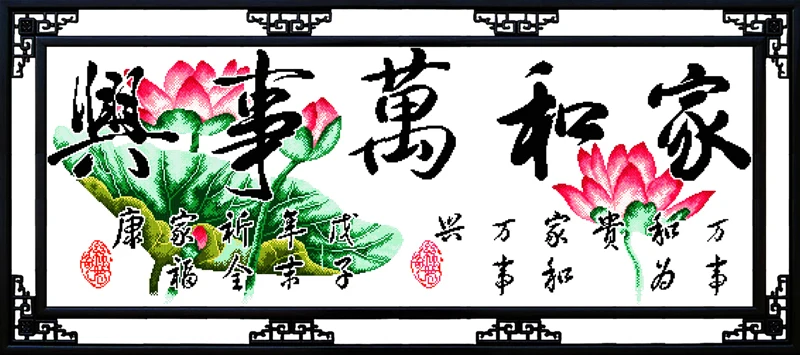 家和萬事興
万事
和为
贵
家和
万事
兴
戊子
年末
祈全
家福
康